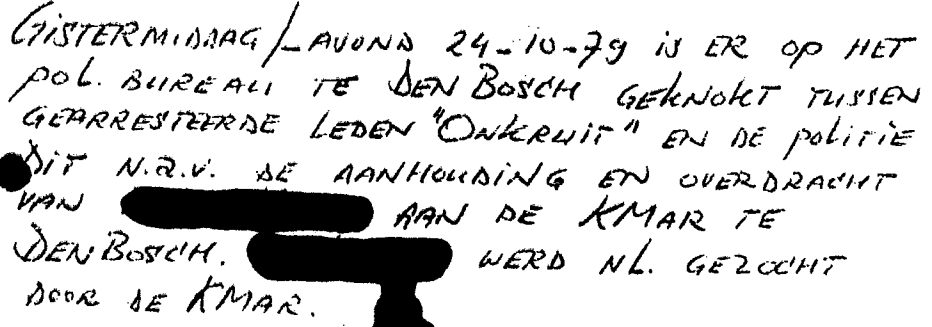 GISTERMIDDAG/-AVOND 24-10-79 is ER op HET
pol. BUREAU TE DEN BOSCH GEKNOKT TUSSEN
GEARRESTEERDE LEDEN "ONKRUIT" EN DE politie
DIT N.a.v. DE AANHOUDING EN OVERDRACHT
VAN AAN DE KMAR TE
DEN BOSCH. WERD NL. GEZOCHT
DOOR DE KMAR.